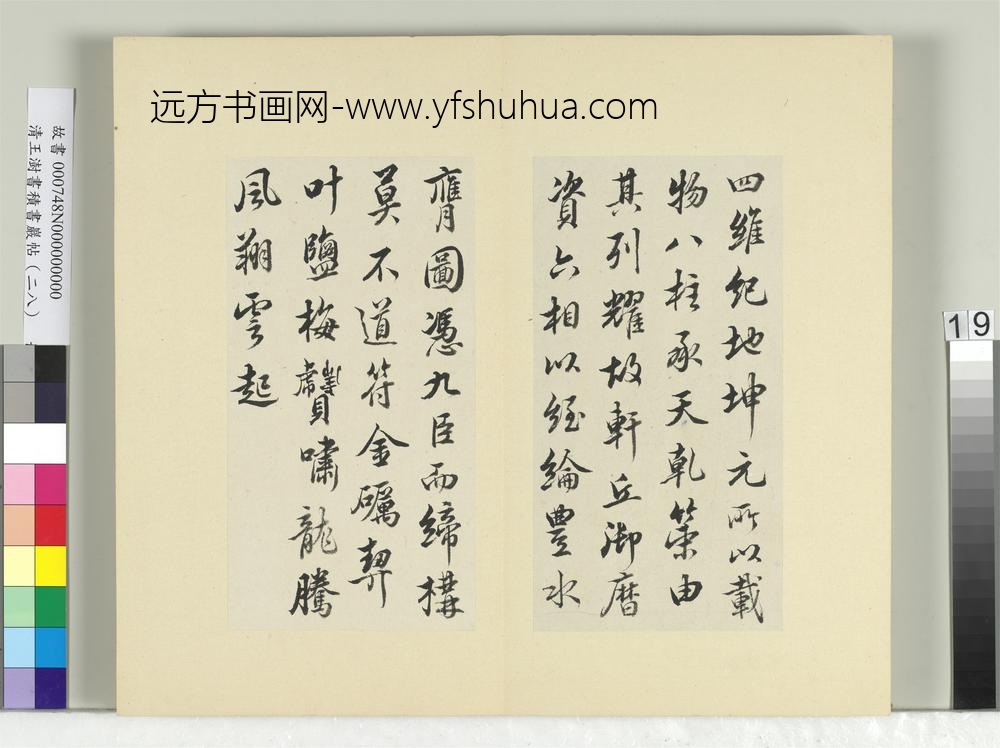 远方书画网-www.yfshuhua.com
四維紀地坤元所以載
物八柱承天乾策由
其列耀故軒丘御曆
資六相以經綸豐水
膺圖憑九臣而締構
莫不道符金礪契
叶鹽梅贙嘯龍騰
風翔雲起
故書 000748N000000000
清王澍書積書巖帖(二八)
19